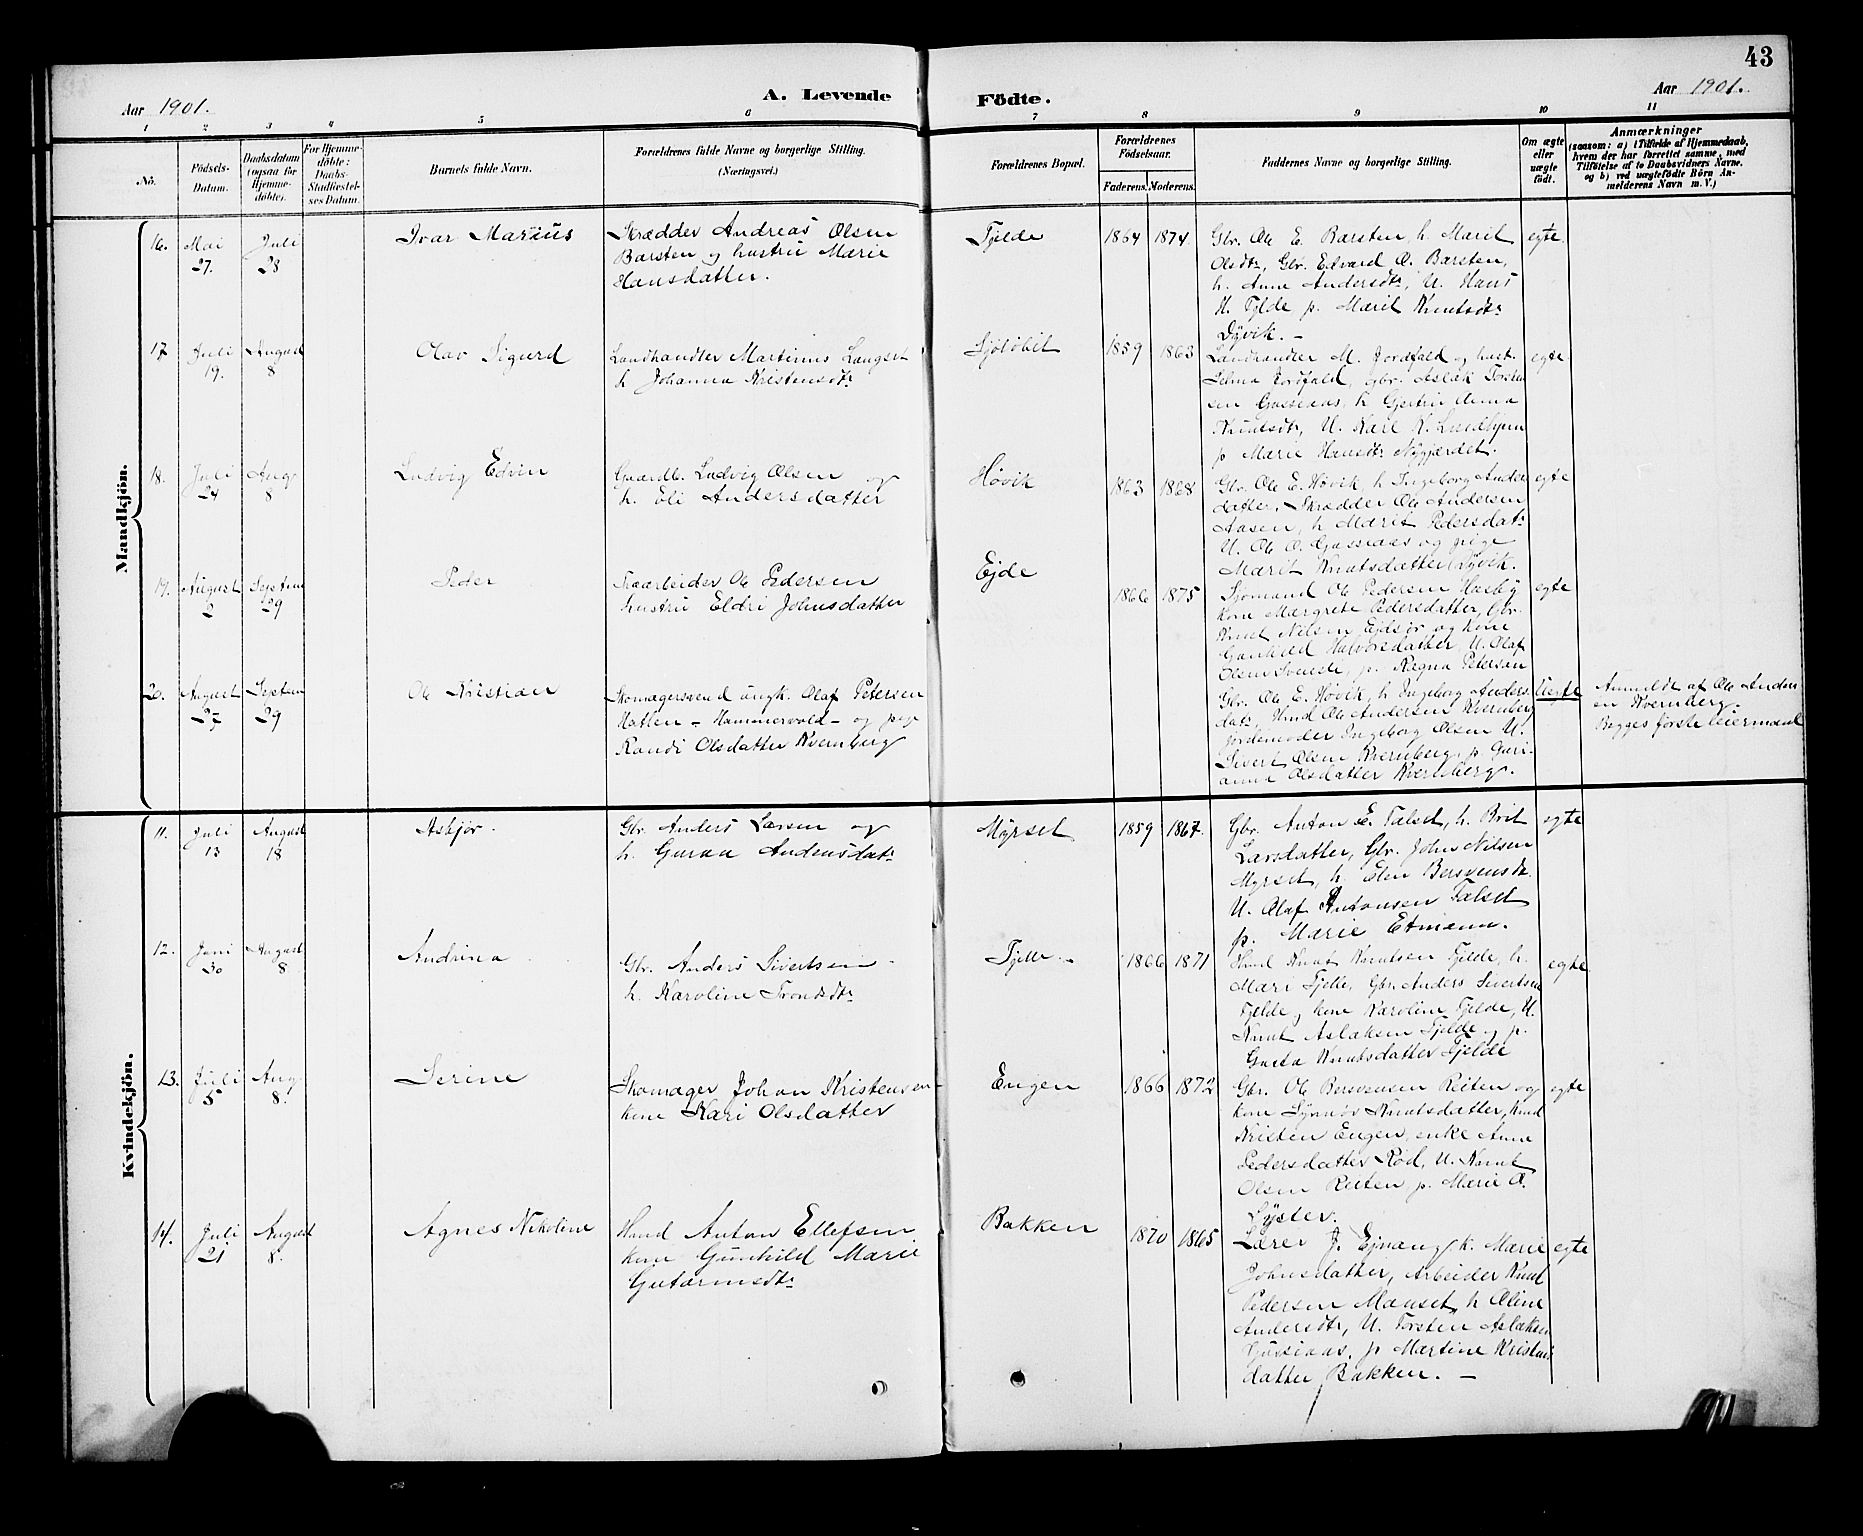 43
Aar 1901.
A. Levende
Födte.
Aar 1901.
1 2 3 4 5 6 7 8 9 10 11
No.
Födsels-
Datum.
Daabsdatum
(ogsaa for
Hjemme-
döbte).
For Hjemme-
döbte:
Daabs-
Stadfæstel-
ses Datum.
Barnets fulde Navn.
Forældrenes fulde Navne og borgerlige Stilling.
(Næringsvei.)
Forældrenes Bopæl.
Forældrenes
Födselsaar.
Faderens. Moderens.
Faddernes Navne og borgerlige Stilling.
Om ægte
eller
uægte
födt.
Anmærkninger
(saasom: a) i Tilfælde af Hjemmedaab,
hvem der har forrettet samme, med
Tilföielse af to Daabsvidners Navne.
og b) ved uægtefödte Börn An-
melderens Navn m. V.)
Mandkjön.
16.
Mai
27.
Juli
28
Ivar Marius
Skrædder Andreas Olsen
Barsten og hustru Marie
Hansdatter.
Tjelde
1864 1874.
Gbr. Ole E. Barsten, h. Marit
Olsdtr, Gbr. Edvard O. Barsten,
h. Anne Andersdtr, U. Hans
H. Tjelde p. Marit Knutsdtr
Dyvik. –
egte.
17
Juli
19.
August
8
Olav Sigurd
Landhandler Martinus Langset
h Johanna Kristensdtr
1859 1863
Landhandler M. Jordfald og hust.
Selma Jordfald, gbr. Aslak Torsten
sen Gussiaas, h
Knutsdtr, U. Karl K.
p Marie Hansdtr
egte.
18.
Juli
24
Aug.
8
Ludvig Edvin
Gaardb. Ludvig Olsen og
h. Eli Andersdatter
Høvik
1863 1868
Gbr. Ole E. Høvik, h Ingeborg Anders
datter, Skrædder Ole Andersen
Aasen, h. Marit Pedersdatr
U. Ole O. Gussiaas og pige
Marit Knutsdatter Dyvik.
egte
19.
August
2
Septem
29
Peder
Træarbeider Ole Pedersen
hustru Eldri Johnsdatter
Ejde
1866 1875
Sjømand Ole Pedersen Husby
kone Margrete Pedersdatter, Gbr.
Knut Nilsen Ejdsør og kone
Gunhild Halvorsdatter, U. Olaf
Olsen p. Ragna Petersen
egte
20.
August
27
Septem
29
Ole Kristian
Skomagersvend ungk. Olaf Petersen
Hatlen – Hammervold – og pige
Randi Olsdatter Kvernberg
Gbr. Ole E. Høvik, h Ingeborg Anders
datr, Ole Andersen Kvernberg
jordemoder Ingeborg Olsen U.
Sivert Olsen Kvernberg, p. Guri-
anna Olsdatter Kvernberg.
Uegte
Anmeldt af Ole Anders
en Kvernberg.
Begges første leiermaal
Kvindekjön.
11.
Juli
13
August
18
Askjør.
Gbr. Anders Larsen og
h. Andersdatr
Myrset
1859 1867.
Gbr. Anton E. Talset, h. Brit
Larsdatter, Gbr. John Nilsen
Myrset, h. Elen Bersvensdr.
U. Olaf Antonsen Talset
p. Marie Etmann.
egte
12.
Juni
30
August
8.
Andrina
Gbr. Anders Sivertsen
h. Karoline Trondsdtr
Tjelle –
1866 1871
Knut Knutsen Tjelde, h.
Mari Tjelle, Gbr. Anders Sivertsen
Tjelde og kone Karoline Tjelde, U.
Knut Aslaksen Tjelde og p.
Knutsdatter Tjelde
egte
13.
Juli
5
Aug.
8.
Serine
Skomager Johan Kristensen
kone Kari Olsdatter
Engen
1866 1872
Gbr. Ole Bersvensen Reiten og
kone Synnøv Knutsdatter,
Kristen Engen, enke Anne
Pedersdatter Rød, U. Knut
Olsen Reiten p. Marie O.
Lyster.
egte
14.
Juli
21
August
8.
Agnes Nikoline
Anton Ellefsen
kone Gunhild Marie
Guttormsdtr
Bakken
1870 1865
Lærer J. Ejnang, k. Marie
Johnsdatter, Arbeider Knut
Pedersen Mauset, h Oline
Andersdtr, U. Torsten Aslaksen
Gussiaas, p Martine Kristens
datter Bakken. –
egte